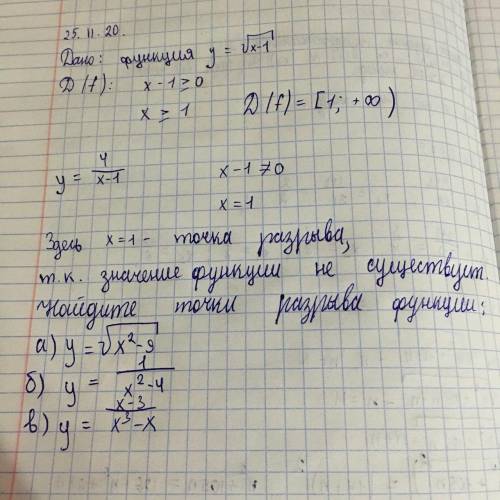 25.11.20.
Дано: функция y = √x-1
D(f): x-1 ≥ 0
x ≥ 1 D(f) = [1; +∞)
y = 4/x-1 x-1 ≠ 0
x = 1
Здесь x=1 - точка разрыва,
т.к. значение функции не существует.
Найдите точки разрыва функции:
а) y = √x²-9
б) y = 1/x²-4
в) y = x-3/x³-x